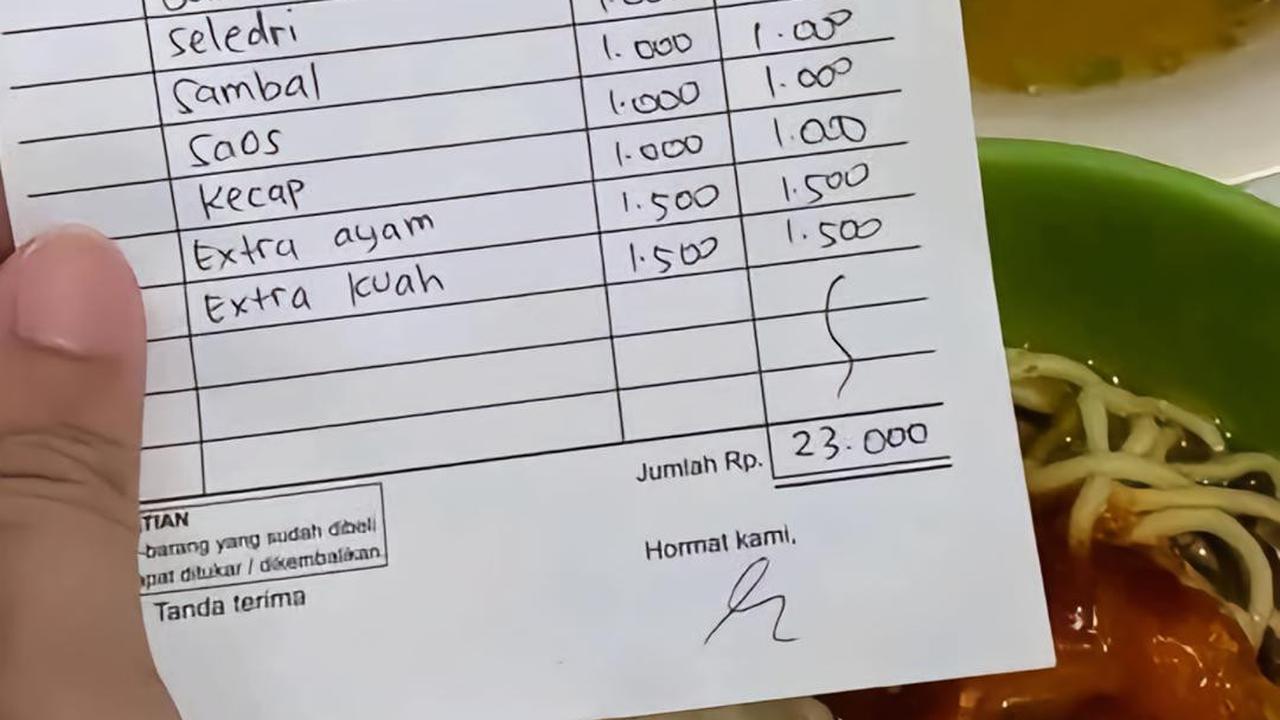 Seledri
Sambal 1.000 1.000
Saos 1.000 1.000
Kecap 1.000 1.000
Extra ayam 1.500 1.500
Extra kuah 1.500 1.500
Jumlah Rp. 23.000
TIAN
-barang yang sudah dibeli
apat ditukar / dikembalikan
Tanda terima
Hormat kami,